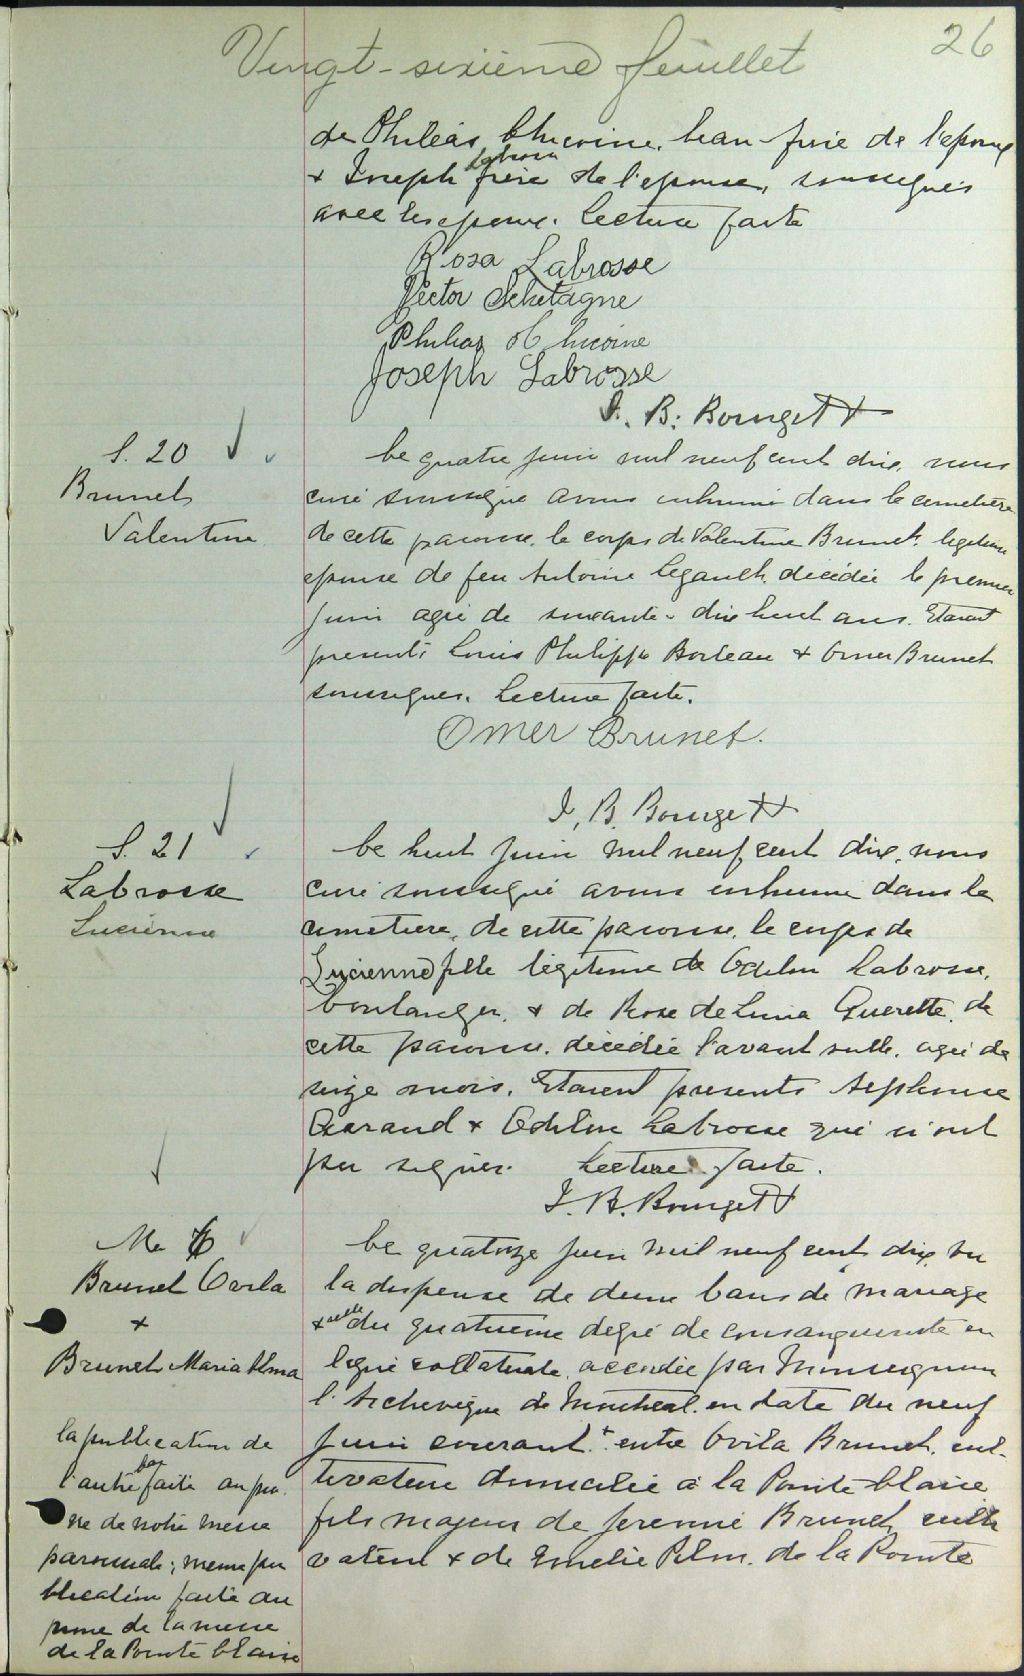 26
Vingt-sixième feuillet
de Philéas Chicoine, beau-frère de l'épouse
+ Joseph Labrosse frère de l'épouse, soussignés
avec les époux. Lecture faite
Rosa Labrosse
Hector Schetagne
Philias Chicoine
Joseph Labrosse
J. B. Bourget
S. 20
Brunet
Valentine
Le quatre juin mil neuf cent dix, nous
curé soussigné avons inhumé dans le cimetière
de cette paroisse, le corps de Valentine Brunet, légitime
épouse de feu Antoine Legault, décédée le premier
juin agée de soixante-dix huit ans. Etaient
présents Louis Philippe Boileau + Omer Brunet
soussignés. Lecture faite.
Omer Brunet.
J. B. Bourget
S. 21
Labrosse
Lucienne
Le huit juin mil neuf cent dix, nous
curé soussigné avons inhumé dans le
cimetière, de cette paroisse, le corps de
Lucienne fille légitime de Odilon Labrosse,
boulanger, + de Rose de Lima Guerette, de
cette paroisse, décédée l'avant veille, agée de
seize mois. Etaient présents Alphonse
Garand + Odilon Labrosse qui n'ont
pu signer. Lecture faite.
J. B. Bourget
M. 6
Brunet Ovila
+
Brunet Maria Alma
la publication de
l'autre ban faite au prô
ne de notre messe
paroissiale; meme pu
blication faite au
prone de la messe
de la Pointe Claire
Le quatorze juin mil neuf cent dix, vu
la dispense de deux bans de mariage
+ celle du quatrième degré de consanguinité en
ligne collatérale, accordée par Monseigneur
l'Archevêque de Montréal en date du neuf
juin courant + entre Ovila Brunet, cul-
tivateur domicilié à la Pointe-Claire
fils majeur de Jérémie Brunet, culti
vateur + de Emelie Pilon, de la Pointe